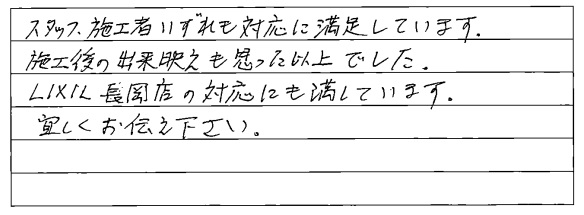 スタッフ、施工者いずれも対応に満足しています。
施工後の出来映えも思った以上でした。
LIXIL長岡店の対応にも満しています。
宜しくお伝え下さい。